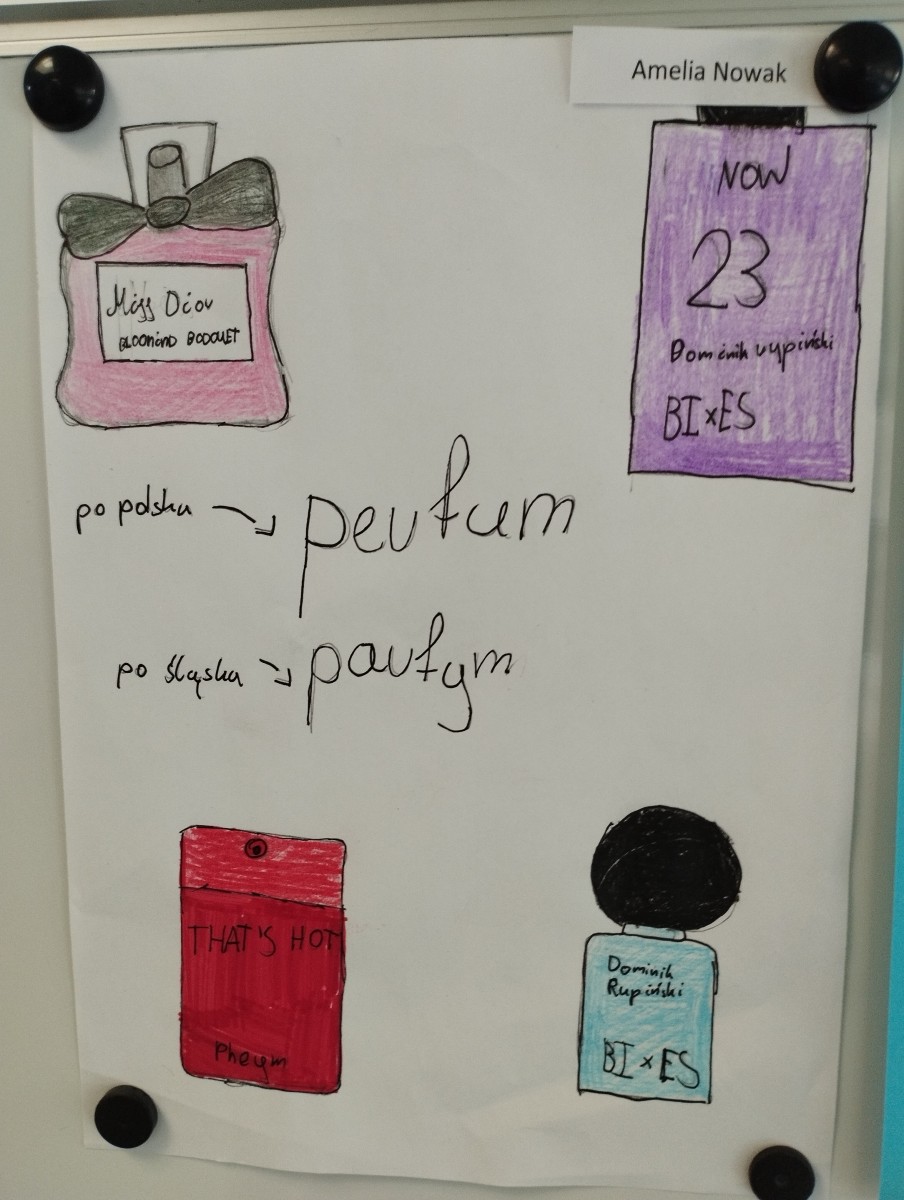 Amelia Nowak
Miss Dior
BLOOMING BOUQUET
NOW
23
Dominik rupiński
BI×ES
po polsku → perfum
po śląsku → parfym
THAT'S HOT
Dominik
Rupiński
BI×ES